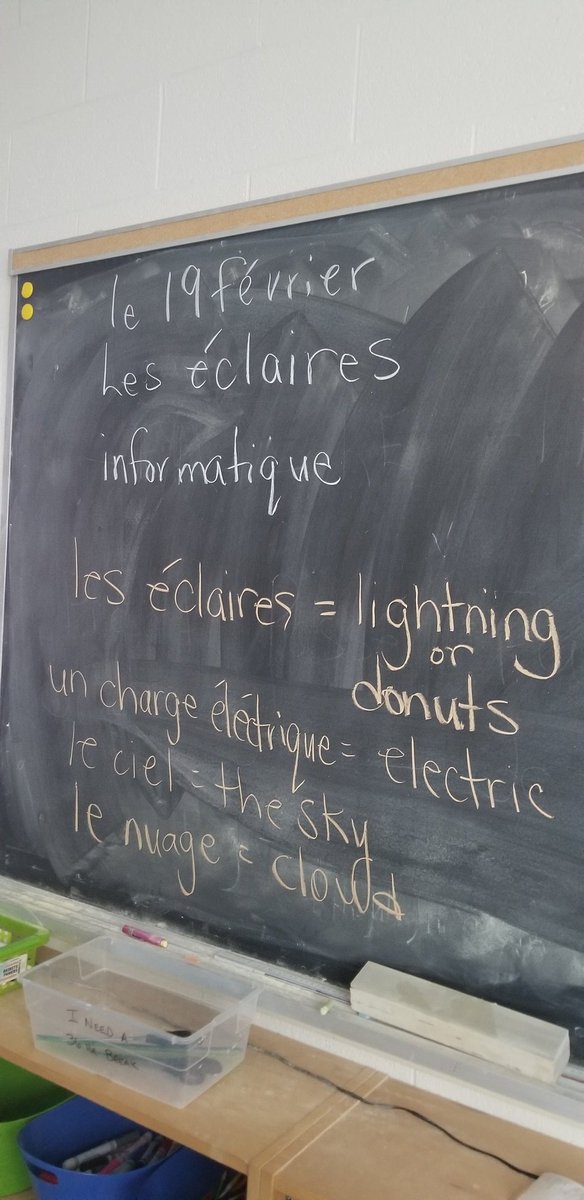 le 19 février
Les éclaires
informatique
les éclaires = lightning
or
donuts
un charge éléctrique = electric
le ciel = the sky
le nuage = cloud
I NEED A